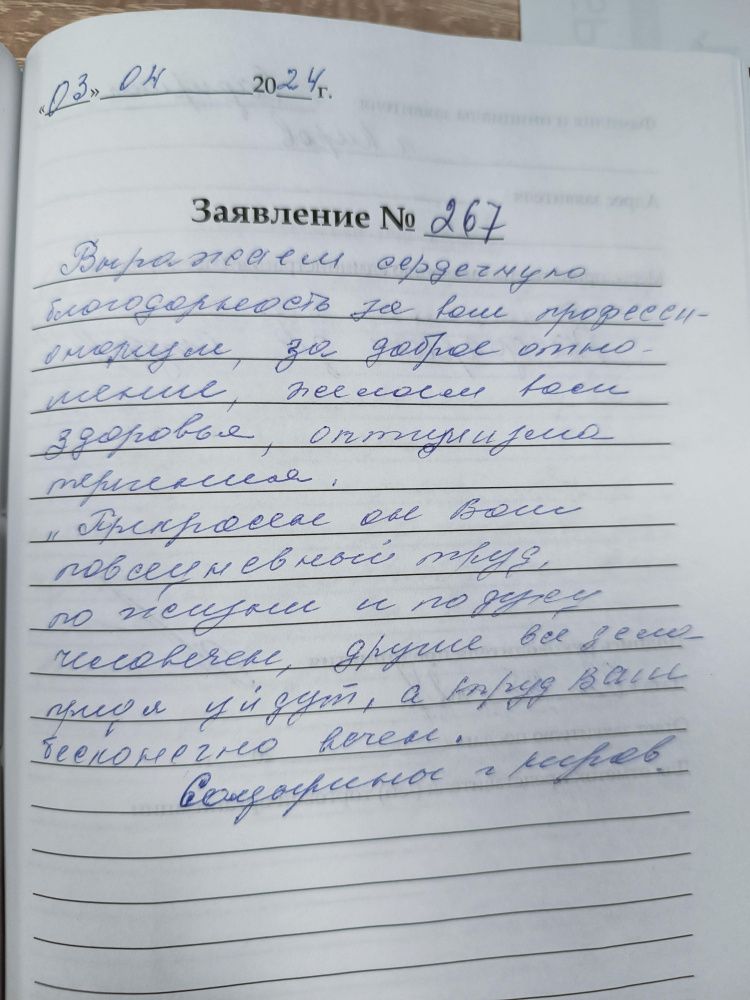 «03» 04 2024 г.
Заявление № 267
Выражаем сердечную
благодарность за ваш професси-
онализм, за доброе отно-
шение, желаем вам
здоровья, оптимизма
терпения.
„Прекрасен он Ваш
повседневный труд,
по жизни и по духу
человечен, другие все дела
уйдут, а труд Ваш
бесконечно вечен.
г Киров.